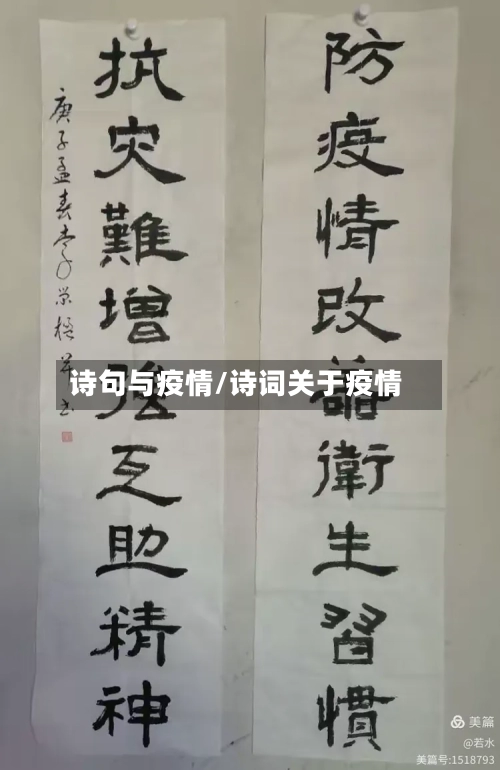 防疫情改善衛生習慣
抗灾難增强互助精神
庚子孟春李荣
诗句与疫情/诗词关于疫情
美篇
@若水
美篇号:1518793